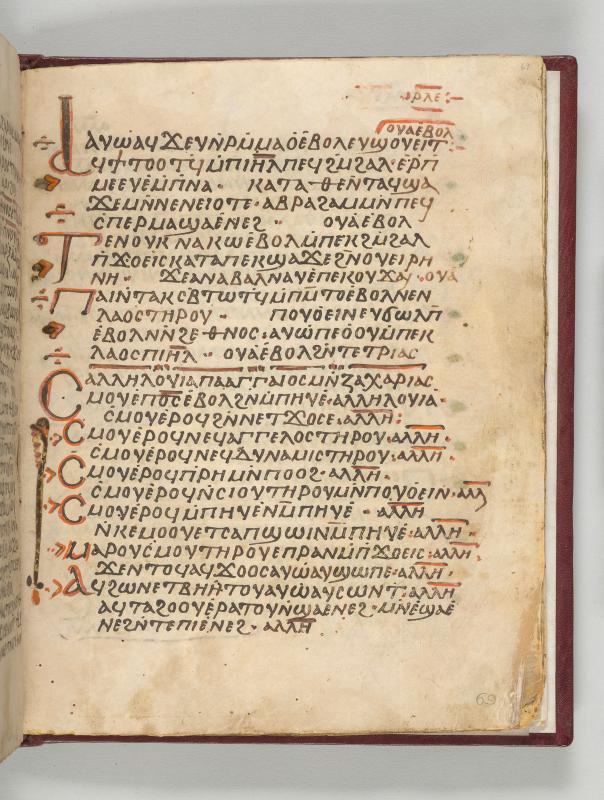 ⲣⲗⲉ
ⲟⲩⲁⲉⲃⲟⲗ
ⲁⲩⲱⲁϥϫⲉⲩⲛⲣⲙⲙⲁⲟⲉⲃⲟⲗⲉⲩϣⲟⲩⲉⲓⲧ:
ⲁϥϯⲧⲟⲟⲧϥⲙⲡⲓⲏ̅ⲗ̅ⲡⲉϥϩⲙϩⲁⲗ·ⲉⲣⲡ
ⲙⲉⲉⲩⲉⲙⲡⲛⲁ· ⲕⲁⲧⲁ·ⲑⲉⲛⲧⲁϥϣⲁ
ϫⲉⲙⲛⲛⲉⲛⲉⲓⲟⲧⲉ·ⲁⲃⲣⲁϩⲁⲙⲙⲛⲡⲉϥ
ⲥⲡⲉⲣⲙⲁϣⲁⲉⲛⲉϩ· ⲟⲩⲁⲉⲃⲟⲗ
ⲧⲉⲛⲟⲩⲕⲛⲁⲕⲱⲉⲃⲟⲗⲙⲡⲉⲕϩⲙϩⲁⲗ
ⲡϫⲟⲉⲓⲥⲕⲁⲧⲁⲡⲉⲕϣⲁϫⲉϩⲛⲟⲩⲉⲓⲣⲏ
ⲛⲏ· ϫⲉⲁⲛⲁⲃⲁⲗⲛⲁⲩⲉⲡⲉⲕⲟⲩϫⲁⲓ·ⲟⲩⲁ
ⲡⲁⲓⲛⲧⲁⲕⲥⲃⲧⲱⲧϥⲙⲡⲙⲧⲟⲉⲃⲟⲗⲛⲉⲛ
ⲗⲁⲟⲥⲧⲏⲣⲟⲩ· ⲡⲟⲩⲟⲉⲓⲛⲉⲩϭⲱⲗⲡ
ⲉⲃⲟⲗⲛⲛϩⲉⲑⲛⲟⲥ·ⲁⲩⲱⲡⲉⲟⲟⲩⲙⲡⲉⲕ
ⲗⲁⲟⲥⲡⲓⲏ̅ⲗ̅· ⲟⲩⲁⲉⲃⲟⲗϩⲛⲧⲉⲧⲣⲓⲁⲥ
ⲥⲁⲗⲗⲏⲗⲟⲩⲓⲁⲡⲁⲁⲅⲅⲁⲓⲟⲥⲙⲛⲍⲁⲭⲁⲣⲓⲁⲥ
ⲥⲙⲟⲩⲉⲡⲟ̅ⲥ̅ⲉⲃⲟⲗϩⲛⲙⲡⲏⲩⲉ·ⲁⲗⲗⲏⲗⲟⲩⲓⲁ·
ⲥⲙⲟⲩⲉⲣⲟϥϩⲛⲛⲉⲧϫⲟⲥⲉ·ⲁⲗⲗⲏ:
ⲥⲙⲟⲩⲉⲣⲟϥⲛⲉϥⲁⲅⲅⲉⲗⲟⲥⲧⲏⲣⲟⲩ·ⲁⲗⲗⲏ·
ⲥⲙⲟⲩⲉⲣⲟϥⲛⲉϥⲇⲩⲛⲁⲙⲓⲥⲧⲏⲣⲟⲩ·ⲁⲗⲗⲏ·
ⲥⲙⲟⲩⲉⲣⲟϥⲡⲣⲏⲙⲛⲡⲟⲟϩ·ⲁⲗⲗⲏ·
ⲥⲙⲟⲩⲉⲣⲟϥⲛⲥⲓⲟⲩⲧⲏⲣⲟⲩⲙⲛⲡⲟⲩⲟⲉⲓⲛ·ⲁⲗⲗ
ⲥⲙⲟⲩⲉⲣⲟϥⲙⲡⲏⲩⲉⲛⲙⲡⲏⲩⲉ· ⲁⲗⲗⲏ
ⲛⲕⲉⲙⲟⲟⲩⲉⲧⲥⲁⲡϣⲱⲓⲛⲙⲡⲏⲩⲉ·ⲁⲗⲗⲏ·
ⲙⲁⲣⲟⲩⲥⲙⲟⲩⲧⲏⲣⲟⲩⲉⲡⲣⲁⲛⲙⲡϫⲟⲉⲓⲥ·ⲁⲗⲗⲏ·
ϫⲉⲛⲧⲟϥⲁϥϫⲟⲟⲥⲁⲩⲱⲁⲩϣⲱⲡⲉ·ⲁⲗⲗⲏ·
ⲁϥϩⲱⲛⲉⲧⲃⲏⲏⲧⲟⲩⲁⲩⲱⲁⲩⲥⲱⲛⲧ·ⲁⲗⲗⲏ
ⲁϥⲧⲁϩⲟⲟⲩⲉⲣⲁⲧⲟⲩⲛϣⲁⲉⲛⲉϩ·ⲙⲛⲉϣⲁⲉ
ⲛⲉϩⲛⲧⲉⲡⲓⲉⲛⲉϩ·ⲁⲗⲗⲏ
69